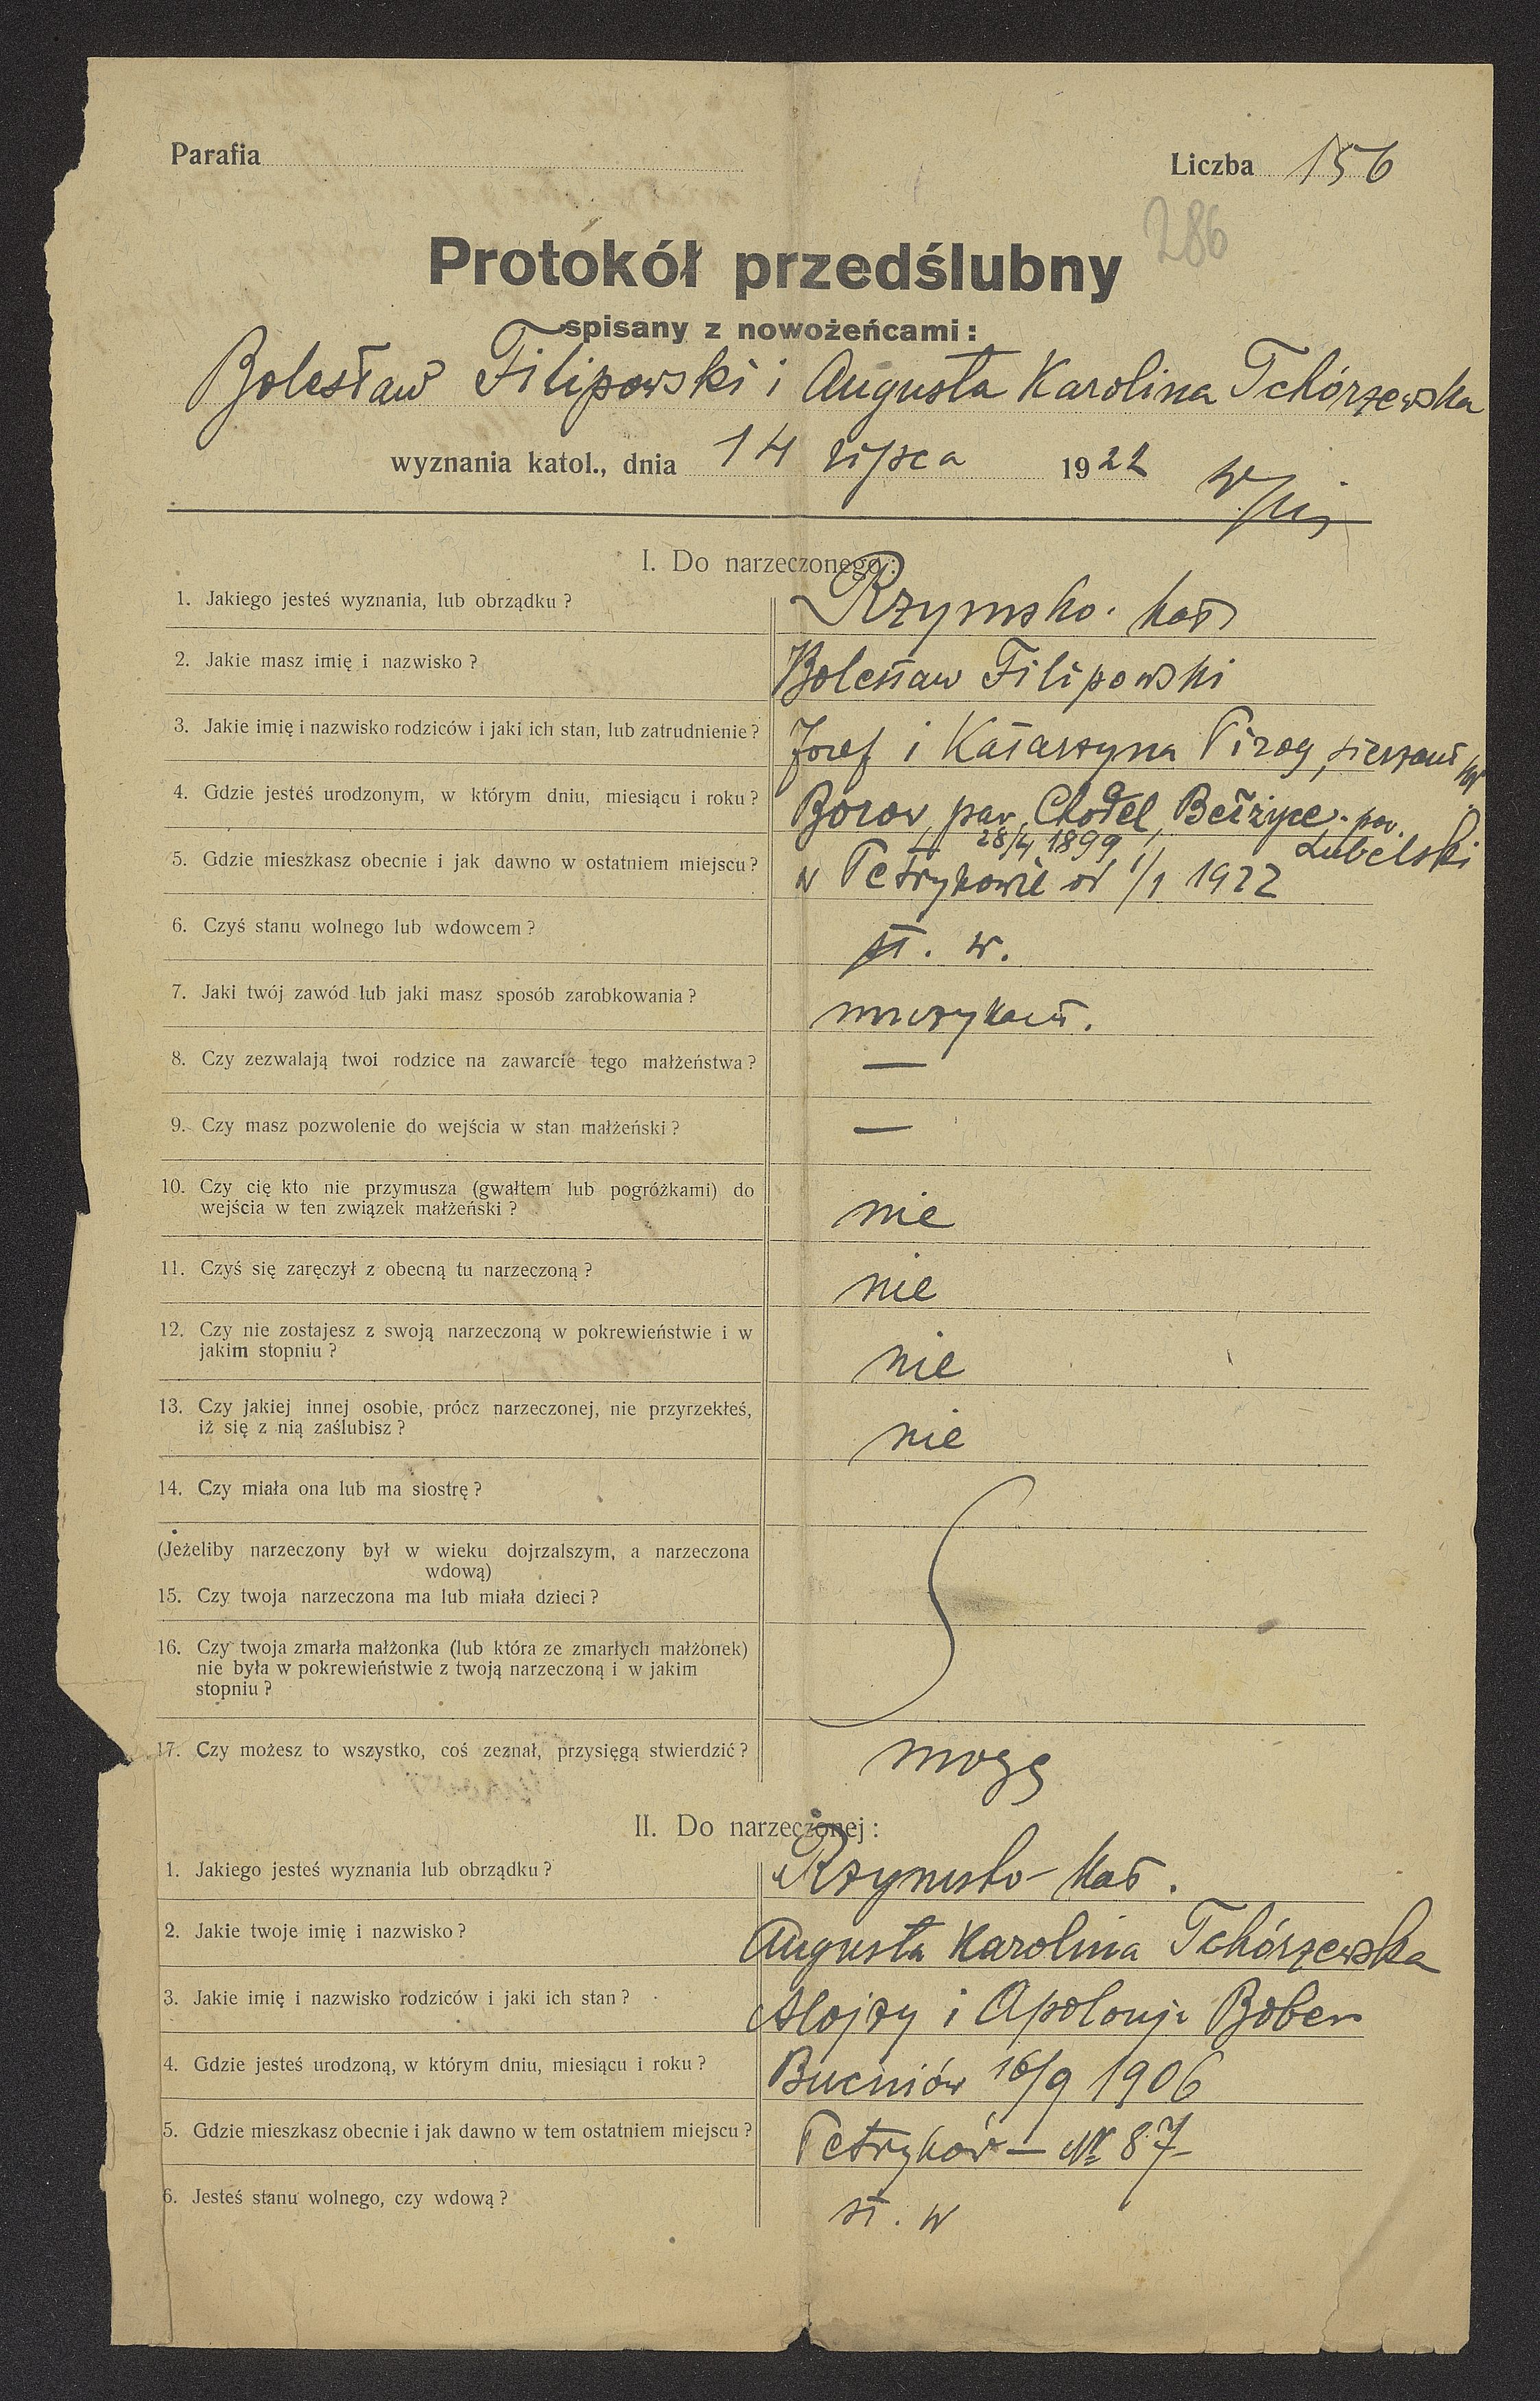 Parafia
Liczba 156
286
Protokół przedślubny
spisany z nowożeńcami:
Bolesław Filipowski i Augusta Karolina Tchórzewska
wyznania katol., dnia 14 lipca 1922
I. Do narzeczonego:
1. Jakiego jesteś wyznania, lub obrządku? Rzymsko. kat
2. Jakie masz imię i nazwisko? Bolesław Filipowski
3. Jakie imię i nazwisko rodziców i jaki ich stan, lub zatrudnienie? Józef i Katarzyna Pirog,
4. Gdzie jesteś urodzonym, w którym dniu, miesiącu i roku? Borow, par, Chodel, Bełżyce. pow. Lubelski
28/4 1899
5. Gdzie mieszkasz obecnie i jak dawno w ostatniem miejscu? w Petrykowie od 1/1 1922
6. Czyś stanu wolnego lub wdowcem? st. w.
7. Jaki twój zawód lub jaki masz sposób zarobkowania? muzykant.
8. Czy zezwalają twoi rodzice na zawarcie tego małżeństwa? —
9. Czy masz pozwolenie do wejścia w stan małżeński? —
10. Czy cię kto nie przymusza (gwałtem lub pogróżkami) do
wejścia w ten związek małżeński? nie
11. Czyś się zaręczył z obecną tu narzeczoną? nie
12. Czy nie zostajesz z swoją narzeczoną w pokrewieństwie i w
jakim stopniu? nie
13. Czy jakiej innej osobie, prócz narzeczonej, nie przyrzekłeś,
iż się z nią zaślubisz? nie
14. Czy miała ona lub ma siostrę?
(Jeżeliby narzeczony był w wieku dojrzalszym, a narzeczona
wdową)
15. Czy twoja narzeczona ma lub miała dzieci?
16. Czy twoja zmarła małżonka (lub która ze zmarłych małżonek)
nie była w pokrewieństwie z twoją narzeczoną i w jakim
stopniu?
17. Czy możesz to wszystko, coś zeznał, przysięgą stwierdzić? mogę
II. Do narzeczonej:
1. Jakiego jesteś wyznania lub obrządku? Rzymsko- kat.
2. Jakie twoje imię i nazwisko? Augusta Karolina Tchórzewska
3. Jakie imię i nazwisko rodziców i jaki ich stan? Alojzy i Apolonji Bober
4. Gdzie jesteś urodzoną, w którym dniu, miesiącu i roku? Bucniów 16/9 1906
5. Gdzie mieszkasz obecnie i jak dawno w tem ostatniem miejscu? Petryków — № 87
6. Jesteś stanu wolnego, czy wdową? st. w